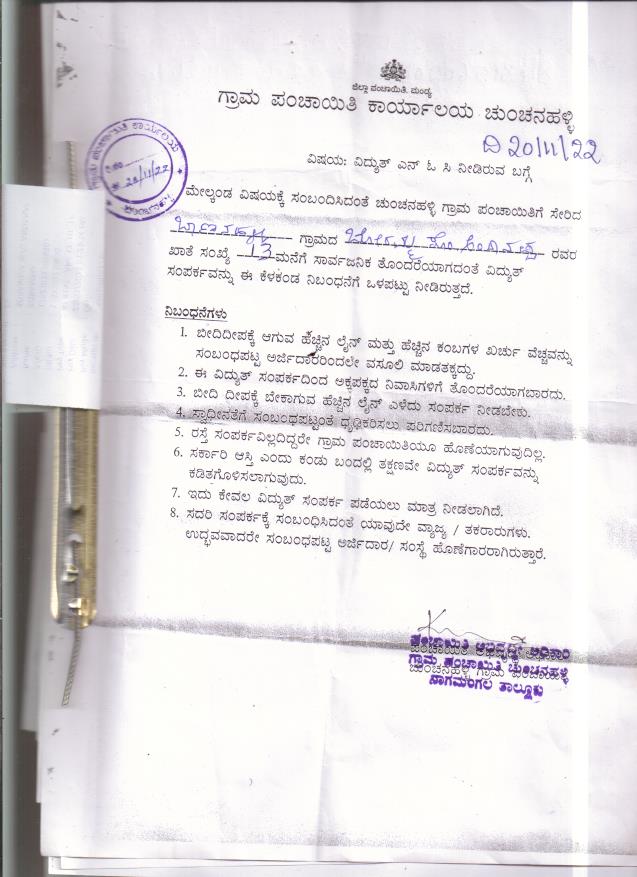 ಜಿಲ್ಲಾ ಪಂಚಾಯಿತಿ, ಮಂಡ್ಯ
ಗ್ರಾಮ ಪಂಚಾಯಿತಿ ಕಾರ್ಯಾಲಯ ಚುಂಚನಹಳ್ಳಿ
ದಿ 20/11/22
ಗ್ರಾಮ ಪಂಚಾಯಿತಿ ಕಾರ್ಯಾಲಯ
20/11/22
ವಿಷಯ: ವಿದ್ಯುತ್ ಎನ್ ಓ ಸಿ ನೀಡಿರುವ ಬಗ್ಗೆ
ಮೇಲ್ಕಂಡ ವಿಷಯಕ್ಕೆ ಸಂಬಂದಿಸಿದಂತೆ ಚುಂಚನಹಳ್ಳಿ ಗ್ರಾಮ ಪಂಚಾಯಿತಿಗೆ ಸೇರಿದ
ಗ್ರಾಮದ ರವರ
ಖಾತೆ ಸಂಖ್ಯೆ 13 ಮನೆಗೆ ಸಾರ್ವಜನಿಕ ತೊಂದರೆಯಾಗದಂತೆ ವಿದ್ಯುತ್
ಸಂಪರ್ಕವನ್ನು ಈ ಕೆಳಕಂಡ ನಿಬಂಧನೆಗೆ ಒಳಪಟ್ಟು ನೀಡಿರುತ್ತದೆ.
ನಿಬಂಧನೆಗಳು
1. ಬೀದಿದೀಪಕ್ಕೆ ಆಗುವ ಹೆಚ್ಚಿನ ಲೈನ್ ಮತ್ತು ಹೆಚ್ಚಿನ ಕಂಬಗಳ ಖರ್ಚು ವೆಚ್ಚವನ್ನು
ಸಂಬಂಧಪಟ್ಟ ಅರ್ಜಿದಾರರಿಂದಲೇ ವಸೂಲಿ ಮಾಡತಕ್ಕದ್ದು.
2. ಈ ವಿದ್ಯುತ್ ಸಂಪರ್ಕದಿಂದ ಅಕ್ಕಪಕ್ಕದ ನಿವಾಸಿಗಳಿಗೆ ತೊಂದರೆಯಾಗಬಾರದು.
3. ಬೀದಿ ದೀಪಕ್ಕೆ ಬೇಕಾಗುವ ಹೆಚ್ಚಿನ ಲೈನ್ ಎಳೆದು ಸಂಪರ್ಕ ನೀಡಬೇಕು.
4. ಸ್ವಾಧೀನತೆಗೆ ಸಂಬಂಧಪಟ್ಟಂತೆ ಧೃಢೀಕರಿಸಲು ಪರಿಗಣಿಸಬಾರದು.
5. ರಸ್ತೆ ಸಂಪರ್ಕವಿಲ್ಲದಿದ್ದರೇ ಗ್ರಾಮ ಪಂಚಾಯಿತಿಯೂ ಹೊಣೆಯಾಗುವುದಿಲ್ಲ.
6. ಸರ್ಕಾರಿ ಆಸ್ತಿ ಎಂದು ಕಂಡು ಬಂದಲ್ಲಿ ತಕ್ಷಣವೇ ವಿದ್ಯುತ್ ಸಂಪರ್ಕವನ್ನು
ಕಡಿತಗೊಳಿಸಲಾಗುವುದು.
7. ಇದು ಕೇವಲ ವಿದ್ಯುತ್ ಸಂಪರ್ಕ ಪಡೆಯಲು ಮಾತ್ರ ನೀಡಲಾಗಿದೆ.
8. ಸದರಿ ಸಂಪರ್ಕಕ್ಕೆ ಸಂಬಂಧಿಸಿದಂತೆ ಯಾವುದೇ ವ್ಯಾಜ್ಯ / ತಕರಾರುಗಳು.
ಉದ್ಭವವಾದರೇ ಸಂಬಂಧಪಟ್ಟ ಅರ್ಜಿದಾರ/ ಸಂಸ್ಥೆ ಹೊಣೆಗಾರರಾಗಿರುತ್ತಾರೆ.
ಪಂಚಾಯಿತಿ ಅಭಿವೃದ್ಧಿ ಅಧಿಕಾರಿ
ಗ್ರಾಮ ಪಂಚಾಯಿತಿ ಚುಂಚನಹಳ್ಳಿ
ಚುಂಚನಹಳ್ಳಿ ಗ್ರಾಮ ಪಂಚಾಯಿತಿ
ನಾಗಮಂಗಲ ತಾಲ್ಲೂಕು